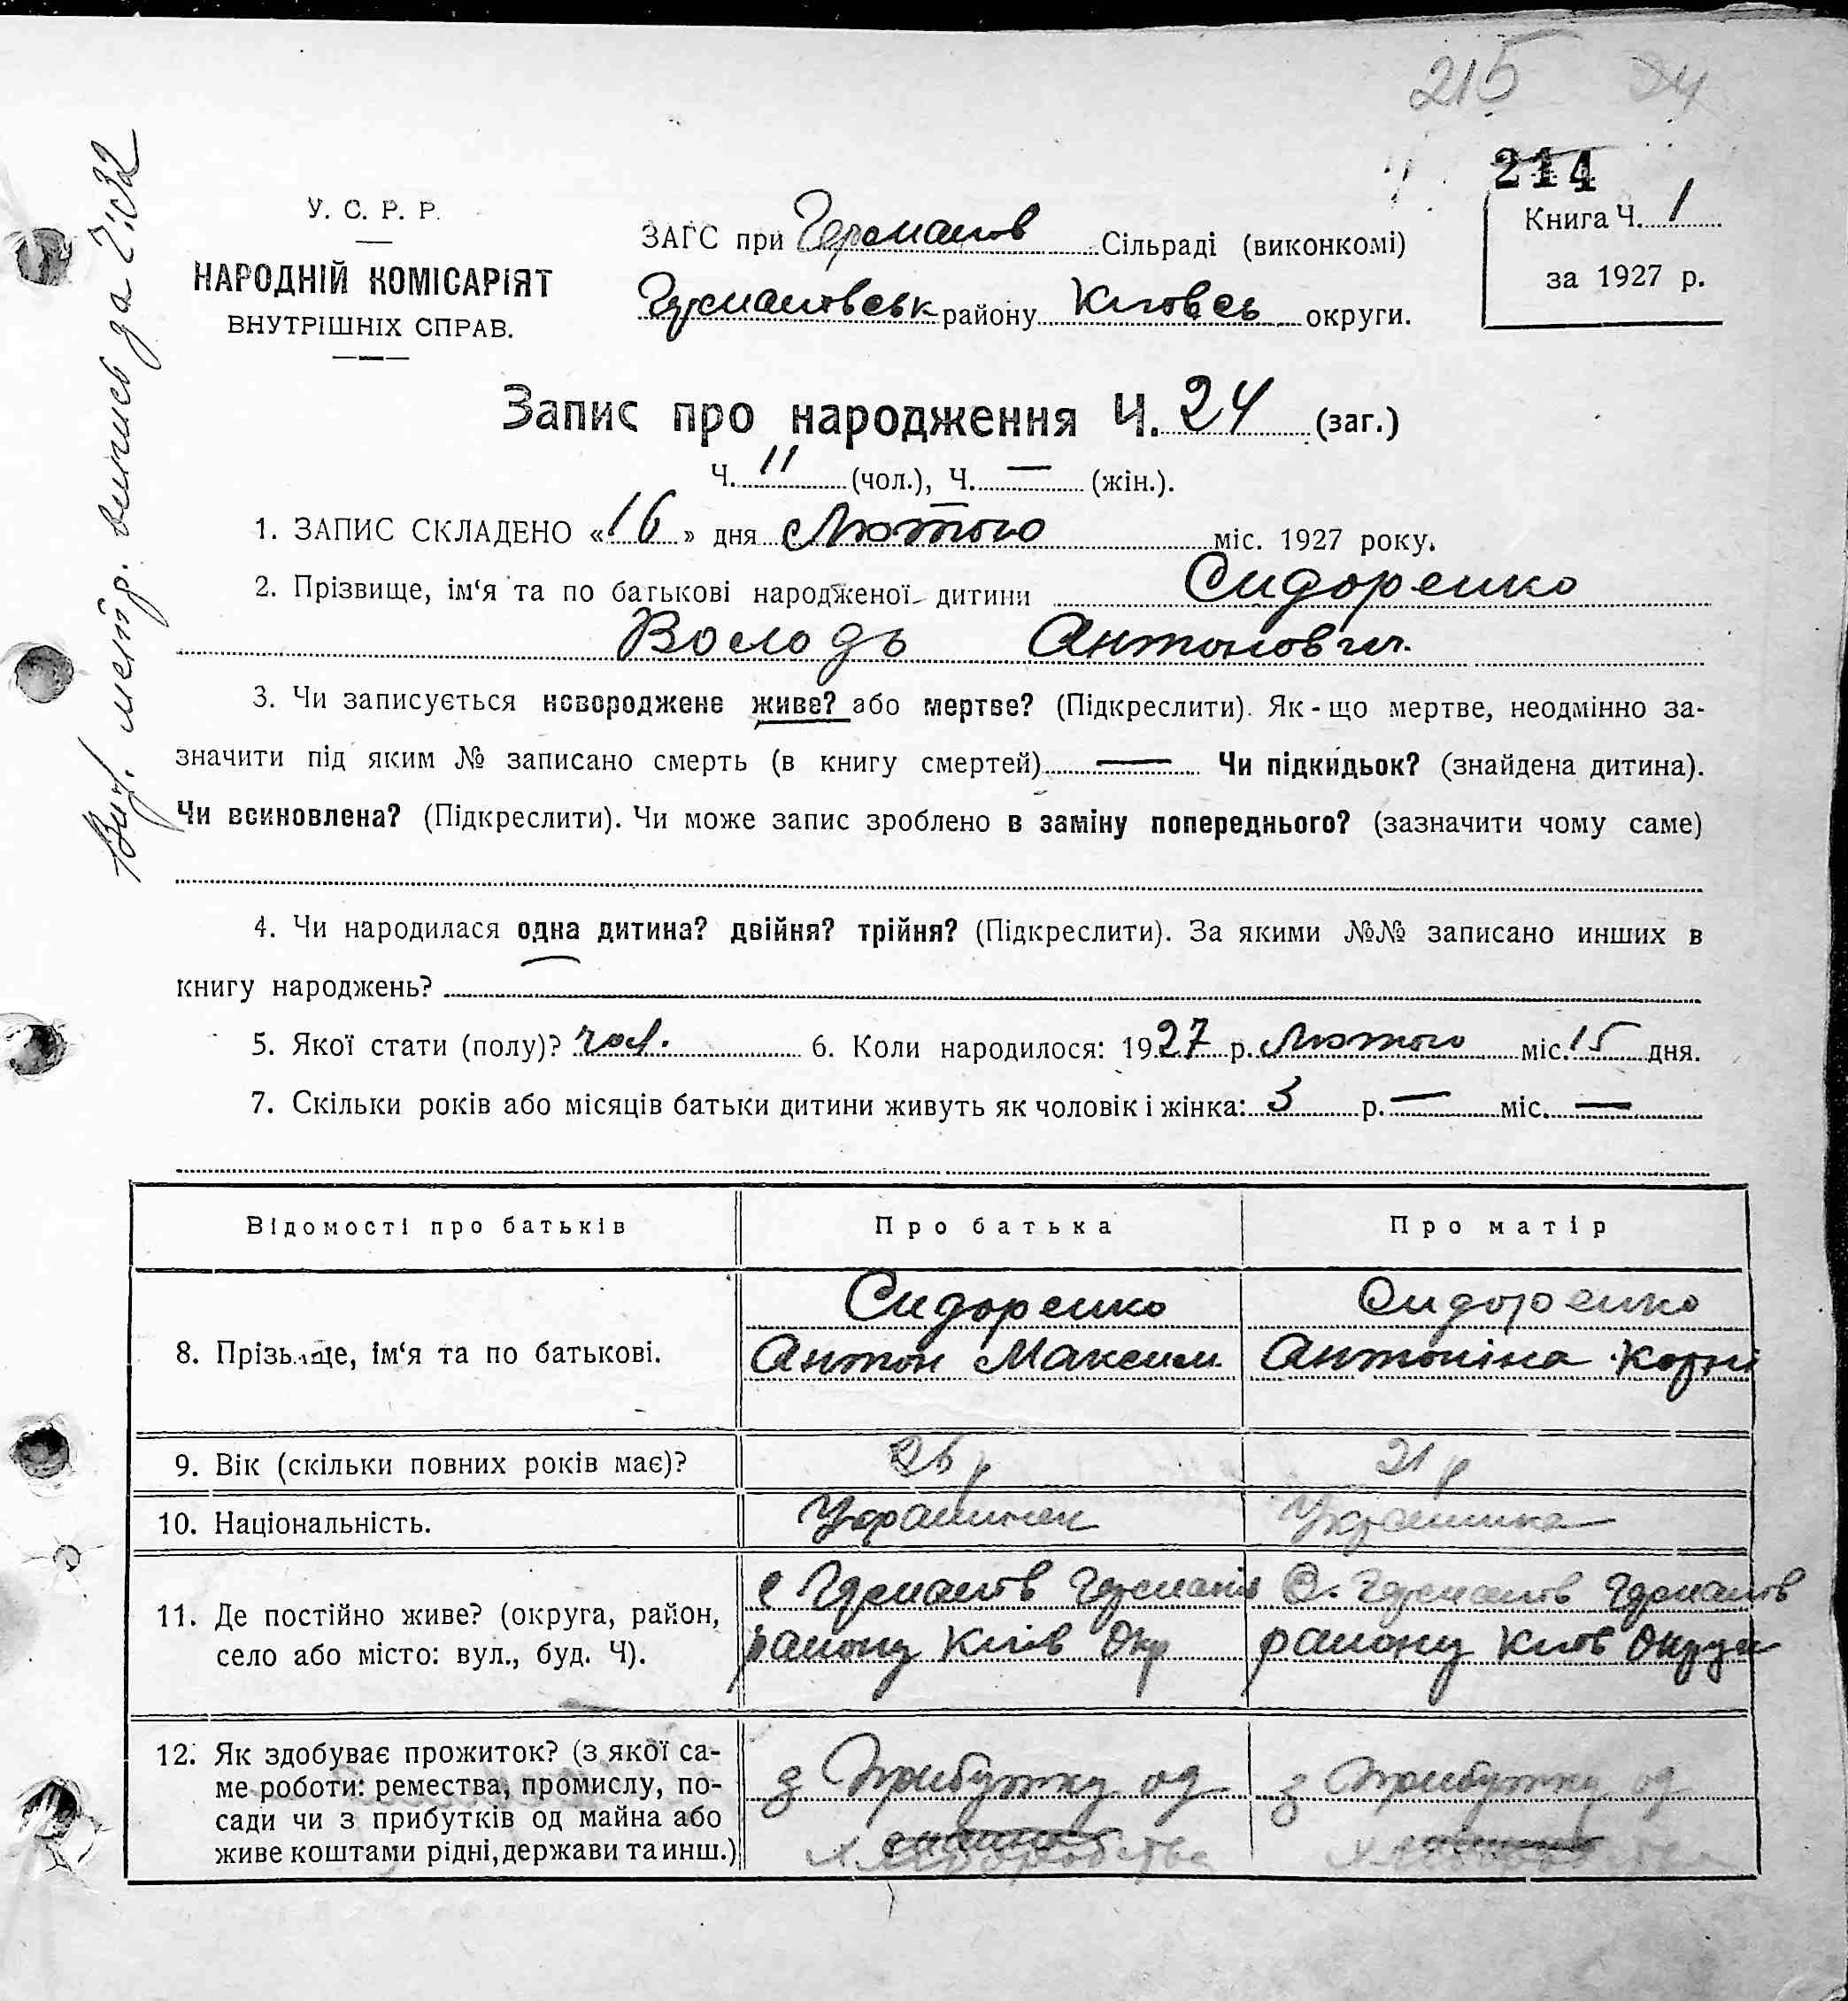 215 24
214
У. С. Р. Р.
НАРОДНІЙ КОМІСАРІЯТ
ВНУТРІШНІХ СПРАВ.
ЗАГС при Германов Сільраді (виконкомі)
Германовськ району Київсь округи.
Книга Ч. 1
за 1927 р.
Запис про народження Ч. 24 (заг.)
Ч. 11 (чол.), Ч. — (жін.).
1. ЗАПИС СКЛАДЕНО «16» дня Лютого міс. 1927 року.
2. Прізвище, ім‘я та по батькові народженої дитини Сидоренко
Володь Антонович.
3. Чи записується новороджене живе? або мертве? (Підкреслити). Як-що мертве, неодмінно за-
значити під яким № записано смерть (в книгу смертей) — Чи підкидьок? (знайдена дитина).
Чи всиновлена? (Підкреслити). Чи може запис зроблено в заміну попереднього? (зазначити чому саме)
4. Чи народилася одна дитина? двійня? трійня? (Підкреслити). За якими №№ записано инших в
книгу народжень?
5. Якої стати (полу)? чол. 6. Коли народилося: 1927 р. Лютого міс. 15 дня.
7. Скільки років або місяців батьки дитини живуть як чоловік і жінка: 3 р. — міс. —
Відомості про батьків Про батька Про матір
8. Прізьвище, ім‘я та по батькові.
Сидоренко
Антон Максим.
Сидоренко
Антоніна Корні
9. Вік (скільки повних років має)? 26 р 21 р
10. Національність. Українец Українка
11. Де постійно живе? (округа, район,
село або місто: вул., буд. Ч).
с Германів Германів
району Київ Окр
С. Германів Германів
району Київ Округи
12. Як здобуває прожиток? (з якої са-
ме роботи: ремества, промислу, по-
сади чи з прибутків од майна або
живе коштами рідні, держави та инш.)
з прибутку од
хліборобства
з прибутку од
хліборобства